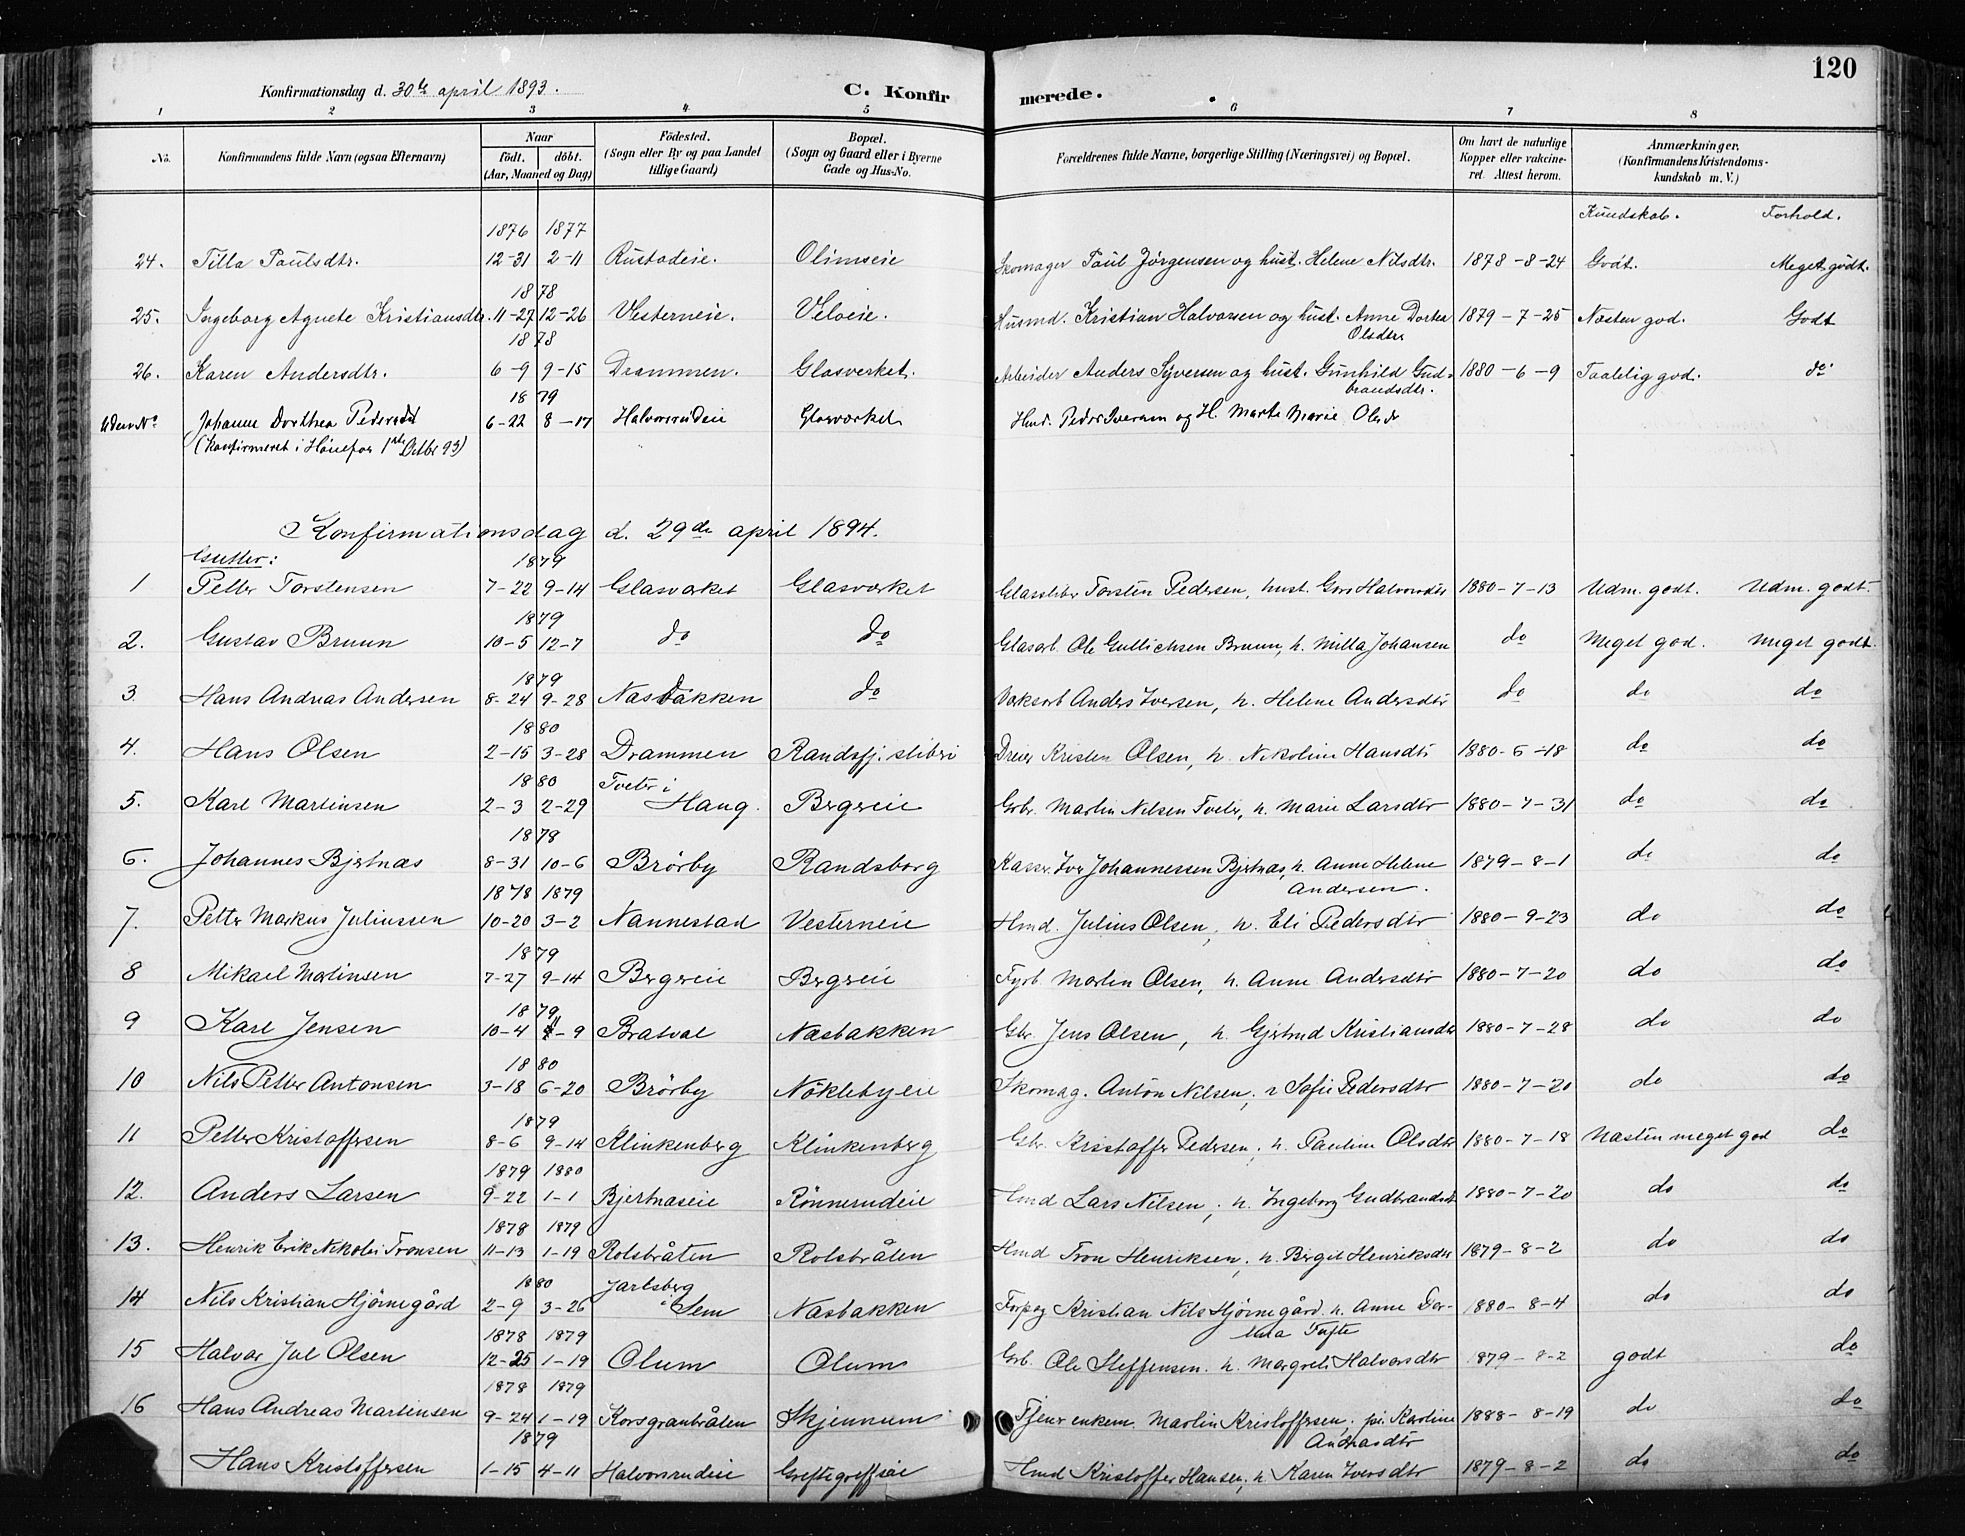 120
Konfirmationsdag d. 30te april 1893.
C. Konfirmerede.
1 2 3 4 5 6 7 8
No. Konfirmandens fulde Navn (ogsaa Efternavn) Naar födt. döbt. (Aar, Maaned og Dag) Födested. (Sogn eller By og paa Landet tillige Gaard) Bopæl. (Sogn og Gaard eller i Byerne Gade og Hus-No. Forældrenes fulde Navne, borgerlige Stilling (Næringsvei) og Bopæl. Om havt de naturlige Kopper eller vakcineret. Attest herom. Anmærkninger. (Konfirmandens Kristendomskundskab m. V.)
Kundskab. Forhold.
1876 1877
24. Tilla Paulsdtr. 12-31 2-11 Rustadeie. Olimseie Skomager Paul Jörgensen og hust. Helene Nilsdtr. 1878-8-24 Godt. Meget godt.
1878
25. Ingeborg Agnete Kristiansdtr. 11-27 12-26 Vesterneie. Veloeie. Husmd. Kristian Halvorsen og hust. Anne Dortea Olsdtr. 1879-7-25 Næsten god. Godt
1878
26. Karen Andersdtr. 6-9 9-15 Drammen. Glasverket. Arbeider Anders Syversen og hust. Gunhild Gudbrandsdtr. 1880-6-9 Taalelig god. do
1879
Uden No Johanne Dorthea Pedersdtr 6-22 8-17 Halvorsrudeie Glasværket Hmd. Peder Iversen og H. Marte Marie Olsdr
(konfirmeret i Hönefos 1ste Octbr 93)
Konfirmationsdag d. 29de april 1894.
Gutter:
1879
1 Petter Torstensen 7-22 9-14 Glasværket Glasværket Glassliber Torsten Pedersen, hust. Guro Halvorsdtr 1880-7-13 Udm. godt. Udm. godt.
1879
2. Gustav Bruun 10-5 12-7 do do Glasarb. Ole Gullichsen Bruun, h. Milla Johansen do Meget god. Meget godt.
1879
3. Hans Andreas Andersen 8-24 9-28 Næsbakken do Værksarb Anders Iversen, h. Helene Andersdtr do do do
1880
4. Hans Olsen 2-15 3-28 Drammen Randsfj. sliberi Dreier Kristen Olsen, h. Nikoline Hansdtr 1880-6-18 do do
1880
5. Karl Martinsen 2-3 2-29 Tveter i Haug. Bergereie Grbr. Martin Nilsen Tveter, h. Marie Larsdtr 1880-7-31 do do
1879
6. Johannes Bjertnæs 8-31 10-6 Brörby Randsborg Kasser. Iver Johannessen Bjertnæs, h. Anne Helene Andersen. 1879-8-1 do do
1878 1879
7. Petter Markus Juliussen 10-20 3-2 Nannestad Vesterneie Hmd. Julius Olsen, h. Eli Pedersdtr 1880-9-23 do do
1879
8 Mikael Martinsen 7-27 9-14 Bergereie Bergereie Fyrb. Martin Olsen, h. Anne Andersdtr 1880-7-20 do do
1879
9 Karl Jensen 10-4 11-9 Bratval Næsbakken Gbr. Jens Olsen, h. Gjertrud Kristiansdtr 1880-7-28 do do
1880
10 Nils Petter Antonsen 3-18 6-20 Brörby Nöklebyeie Skomag. Anton Nilsen, h Sofie Pedersdtr 1880-7-20 do do
1879
11 Petter Kristoffersen 8-6 9-14 Klinkenberg Klinkenberg Gbr. Kristoffer Pedersen, h. Pauline Olsdtr 1880-7-18 Næsten meget god do
1879 1880
12. Anders Larsen 9-22 1-1 Bjertnæseie Rönnerudeie Hmd Lars Nilsen, h. Ingeborg Gudbrandsdtr 1880-7-20 do do
1878 1879
13. Henrik Erik Nikolai Tronsen 11-13 1-19 Rolsbråten Rolsbråten Hmd Tron Henriksen, h. Bergit Henriksdtr 1879-8-2 do do
1880
14 Nils Kristian Hjörnegård 2-9 3-26 Jarlsberg i Sem Næsbakken Forpag Kristian Nils Hjörnegård. h. Anne Bertha Tufte 1880-8-4 do do
1878 1879
15 Halvor Jul Olsen 12-25 1-19 Olum Olum Grb. Ole Steffensen. h. Margrete Halvorsdtr 1879-8-2 godt do
1878 1879
16 Hans Andreas Martinsen 9-24 1-19 Korsgranbråten Skjennum Tjener enkem. Martin Kristoffersen, pi. Karoline Andreasdtr 1888-8-19 do do
1879
Hans Kristoffersen 1-15 4-11 Halvorsrudeie Greftegreffseie Hmd Kristoffer Hansen, h Karen Iversdtr 1879-8-2 do do